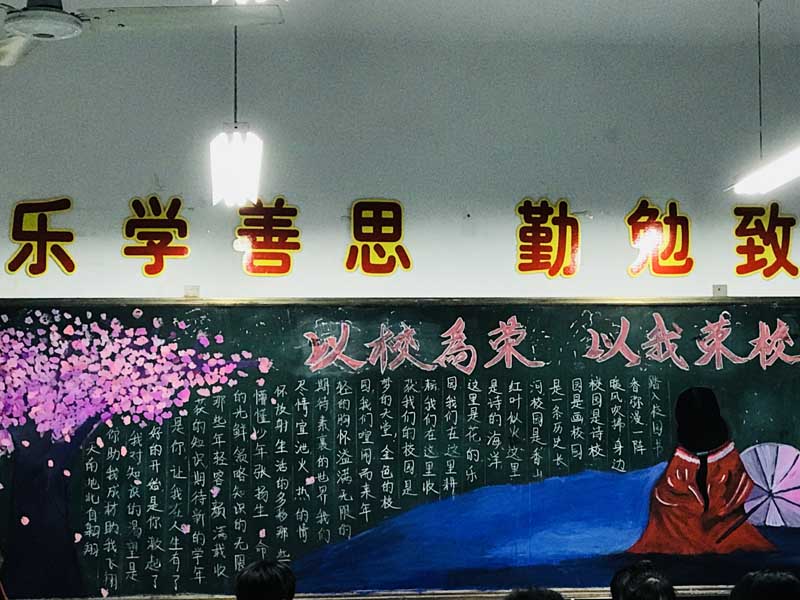 乐学善思 勤勉致
以校為荣 以我荣校
踏入校园
香弥漫一阵
暖风吹拂身边
校园是诗校
园是画校园
是一条历史长
河校园是香山
红叶似火这里
是诗的海洋
这里是花的乐
园我们在这里耕
耘我们在这里收
获我们的校园是
梦的天堂金色的校
园我们喧闹而来年
轻的胸怀溢满无限的
期待素裹的世界我们
尽情宣泄火热的情
怀放射生活的多彩那些
懵懂少年张扬生命
的光鲜策略知识的无限
那些年轻容颜满载收
获的知识期待新的学年
是你让我在人生有了
好的开始是你教起了
我对知识的渴望是
你助我成材助我飞翔
天南地北自翱翔